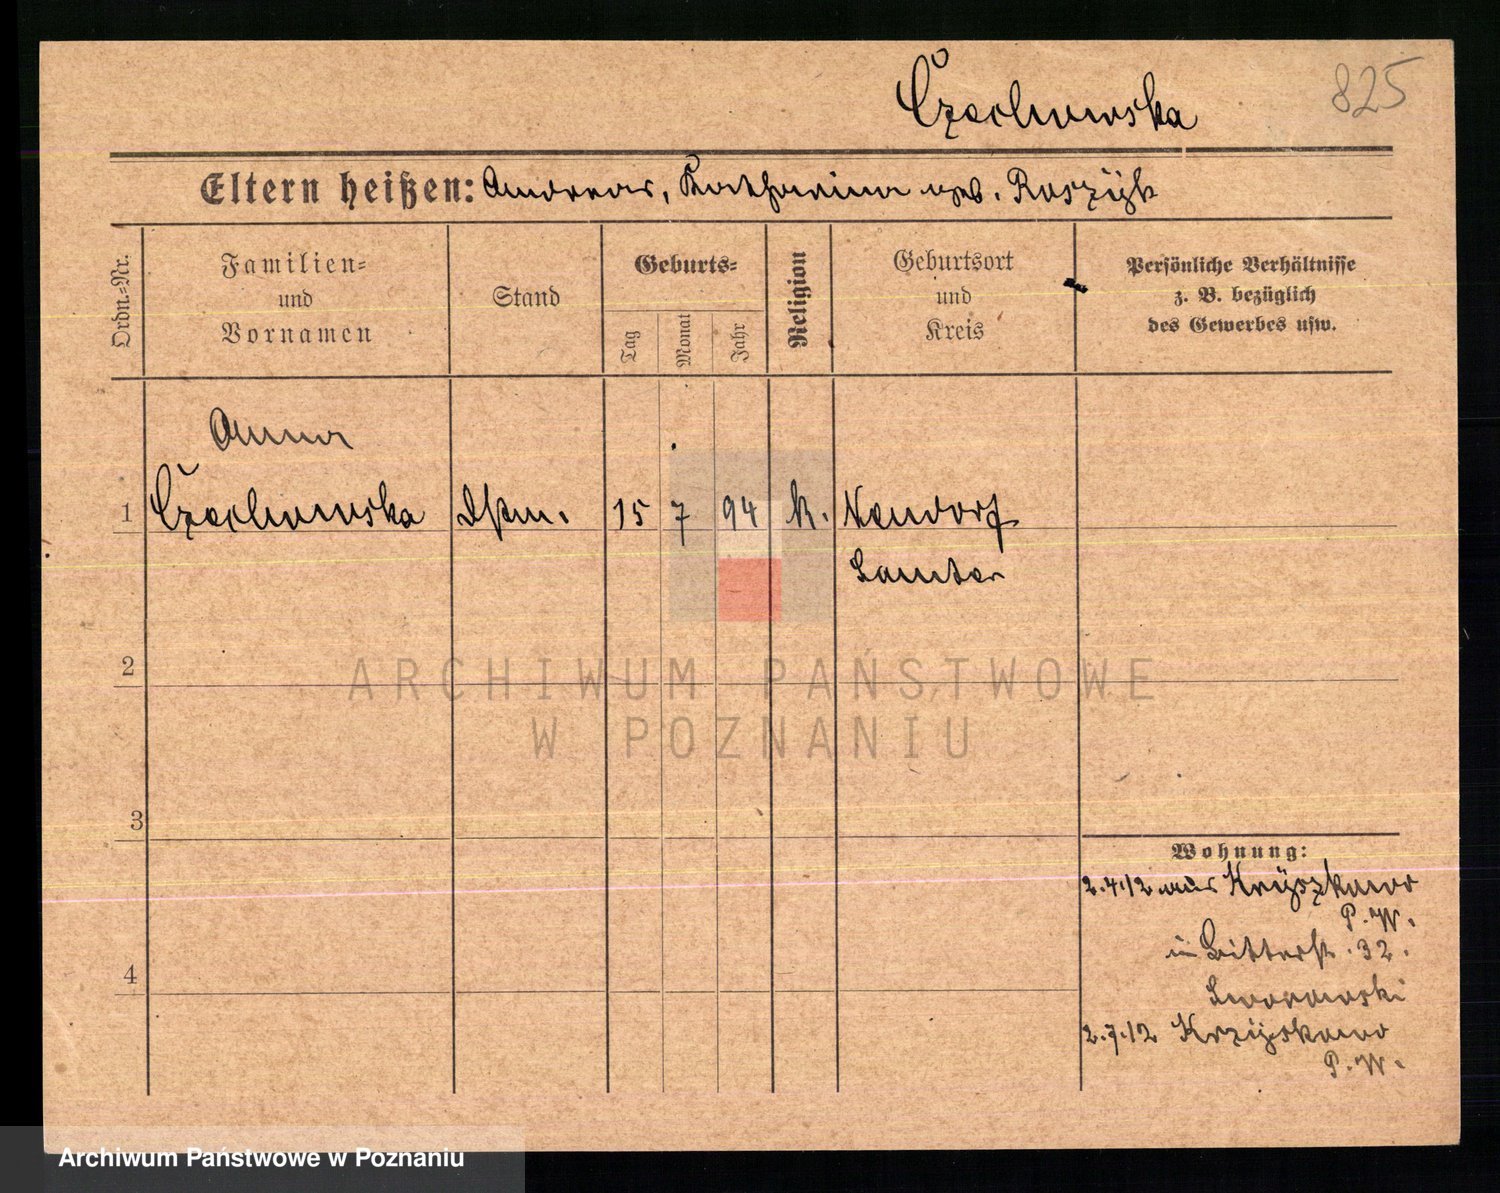 825
Czechowska
Eltern heißen: Andreas, Katharina geb. Raszyk
Ordn.-Nr.
Familien-
und
Vornamen
Stand
Geburts-
Tag
Monat
Jahr
Religion
Geburtsort
und
Kreis
Persönliche Verhältnisse
z. B. bezüglich
des Gewerbes usw.
Anna
1 Czechowska Dstm. 15 7 94 k. Neudorf
Samter
2
3
4
Wohnung:
2.4.12 aus
P. W.
in Ritterst. 32.
2.7.12
P. W.
ARCHIWUM PAŃSTWOWE
W POZNANIU
Archiwum Państwowe w Poznaniu